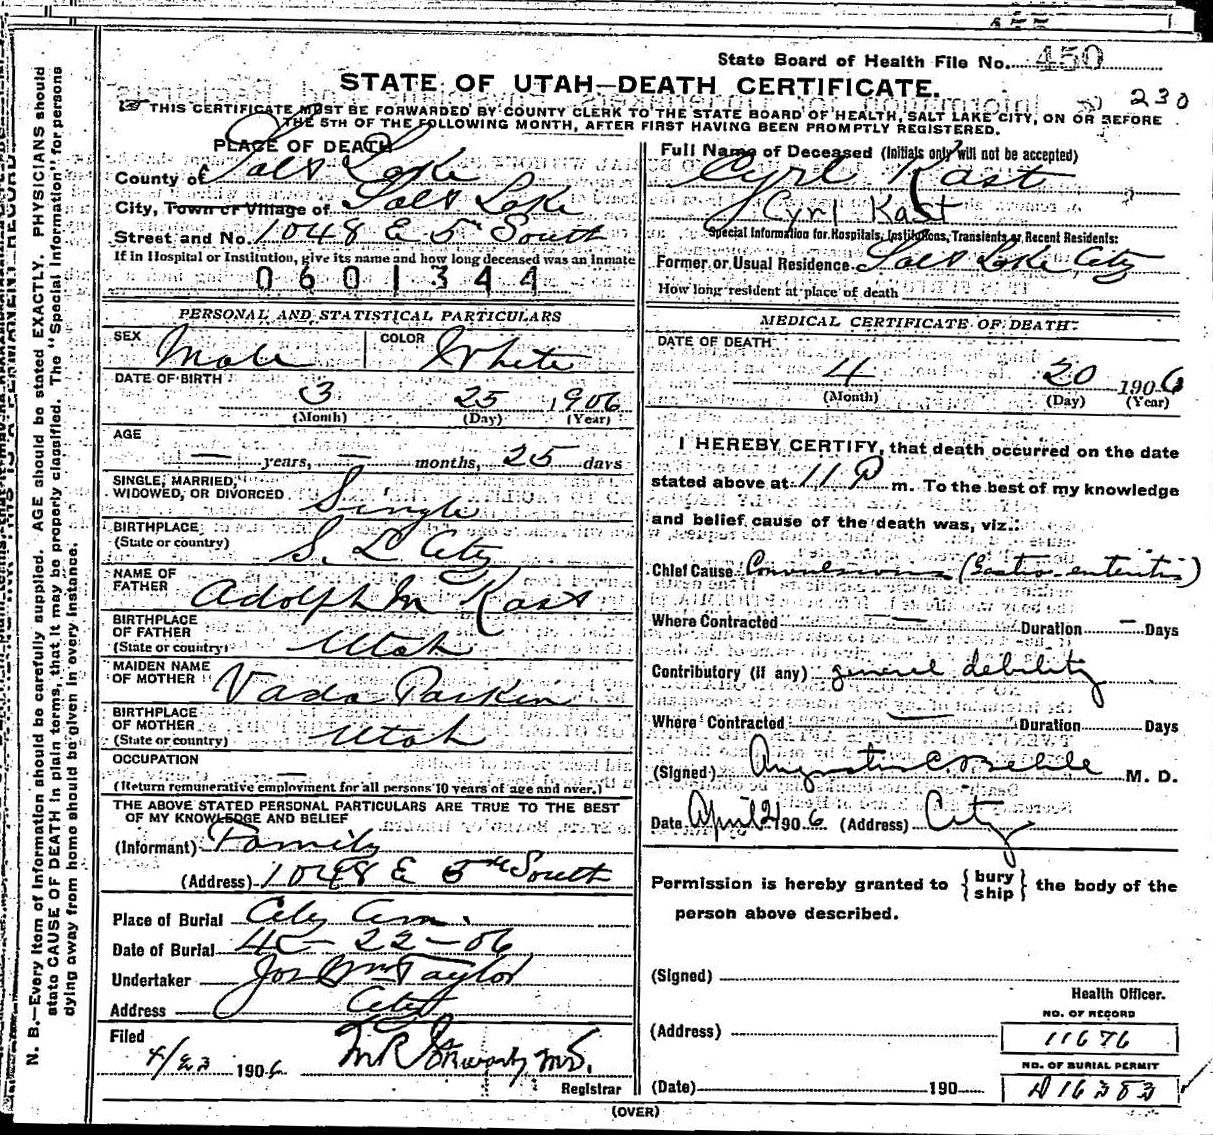 State Board of Health File No. 450
STATE OF UTAH—DEATH CERTIFICATE.
230
THIS CERTIFICATE MUST BE FORWARDED BY COUNTY CLERK TO THE STATE BOARD OF HEALTH, SALT LAKE CITY, ON OR BEFORE
THE 5TH OF THE FOLLOWING MONTH, AFTER FIRST HAVING BEEN PROMPTLY REGISTERED.
PLACE OF DEATH
County of Salt Lake
City, Town or Village of Salt Lake
Street and No. 1048 E 5th South
If in Hospital or Institution, give its name and how long deceased was an inmate
0601344
Full Name of Deceased (Initials only will not be accepted)
Cyrl Kast
Cyrl Kast
Special Information for Hospitals, Institutions, Transients or Recent Residents:
Former or Usual Residence Salt Lake City
How long resident at place of death
PERSONAL AND STATISTICAL PARTICULARS
SEX Male COLOR White
DATE OF BIRTH
3 25 1906
(Month) (Day) (Year)
AGE
— years, — months, 25 days
SINGLE, MARRIED,
WIDOWED, OR DIVORCED Single
BIRTHPLACE
(State or country) S. L City
NAME OF
FATHER Adolph M Kast
BIRTHPLACE
OF FATHER
(State or country) Utah
MAIDEN NAME
OF MOTHER Vada Parkin
BIRTHPLACE
OF MOTHER
(State or country) Utah
OCCUPATION
—
(Return remunerative employment for all persons 10 years of age and over.)
THE ABOVE STATED PERSONAL PARTICULARS ARE TRUE TO THE BEST
OF MY KNOWLEDGE AND BELIEF
(Informant) Family
(Address) 1048 E 5th South
Place of Burial City Cem.
Date of Burial 4 – 22 – 06
Undertaker Jos Wm Taylor
Address City
Filed
4/23 1906
Registrar
MEDICAL CERTIFICATE OF DEATH
DATE OF DEATH
4 20 1906
(Month) (Day) (Year)
I HEREBY CERTIFY, that death occurred on the date
stated above at 11 P m. To the best of my knowledge
and belief cause of the death was, viz.:
Chief Cause Convulsions (Gastro-enteritis)
Where Contracted — Duration — Days
Contributory (if any) general debility
Where Contracted — Duration Days
(Signed) M. D.
Date April 21 1906 (Address) City
Permission is hereby granted to { bury ship } the body of the
person above described.
(Signed)
Health Officer.
(Address)
NO. OF RECORD
11676
NO. OF BURIAL PERMIT
(Date) 190 A 16383
(OVER)
N. B.—Every item of information should be carefully supplied. AGE should be stated EXACTLY. PHYSICIANS should
state CAUSE OF DEATH in plain terms, that it may be properly classified. The "Special Information" for persons
dying away from home should be given in every instance.